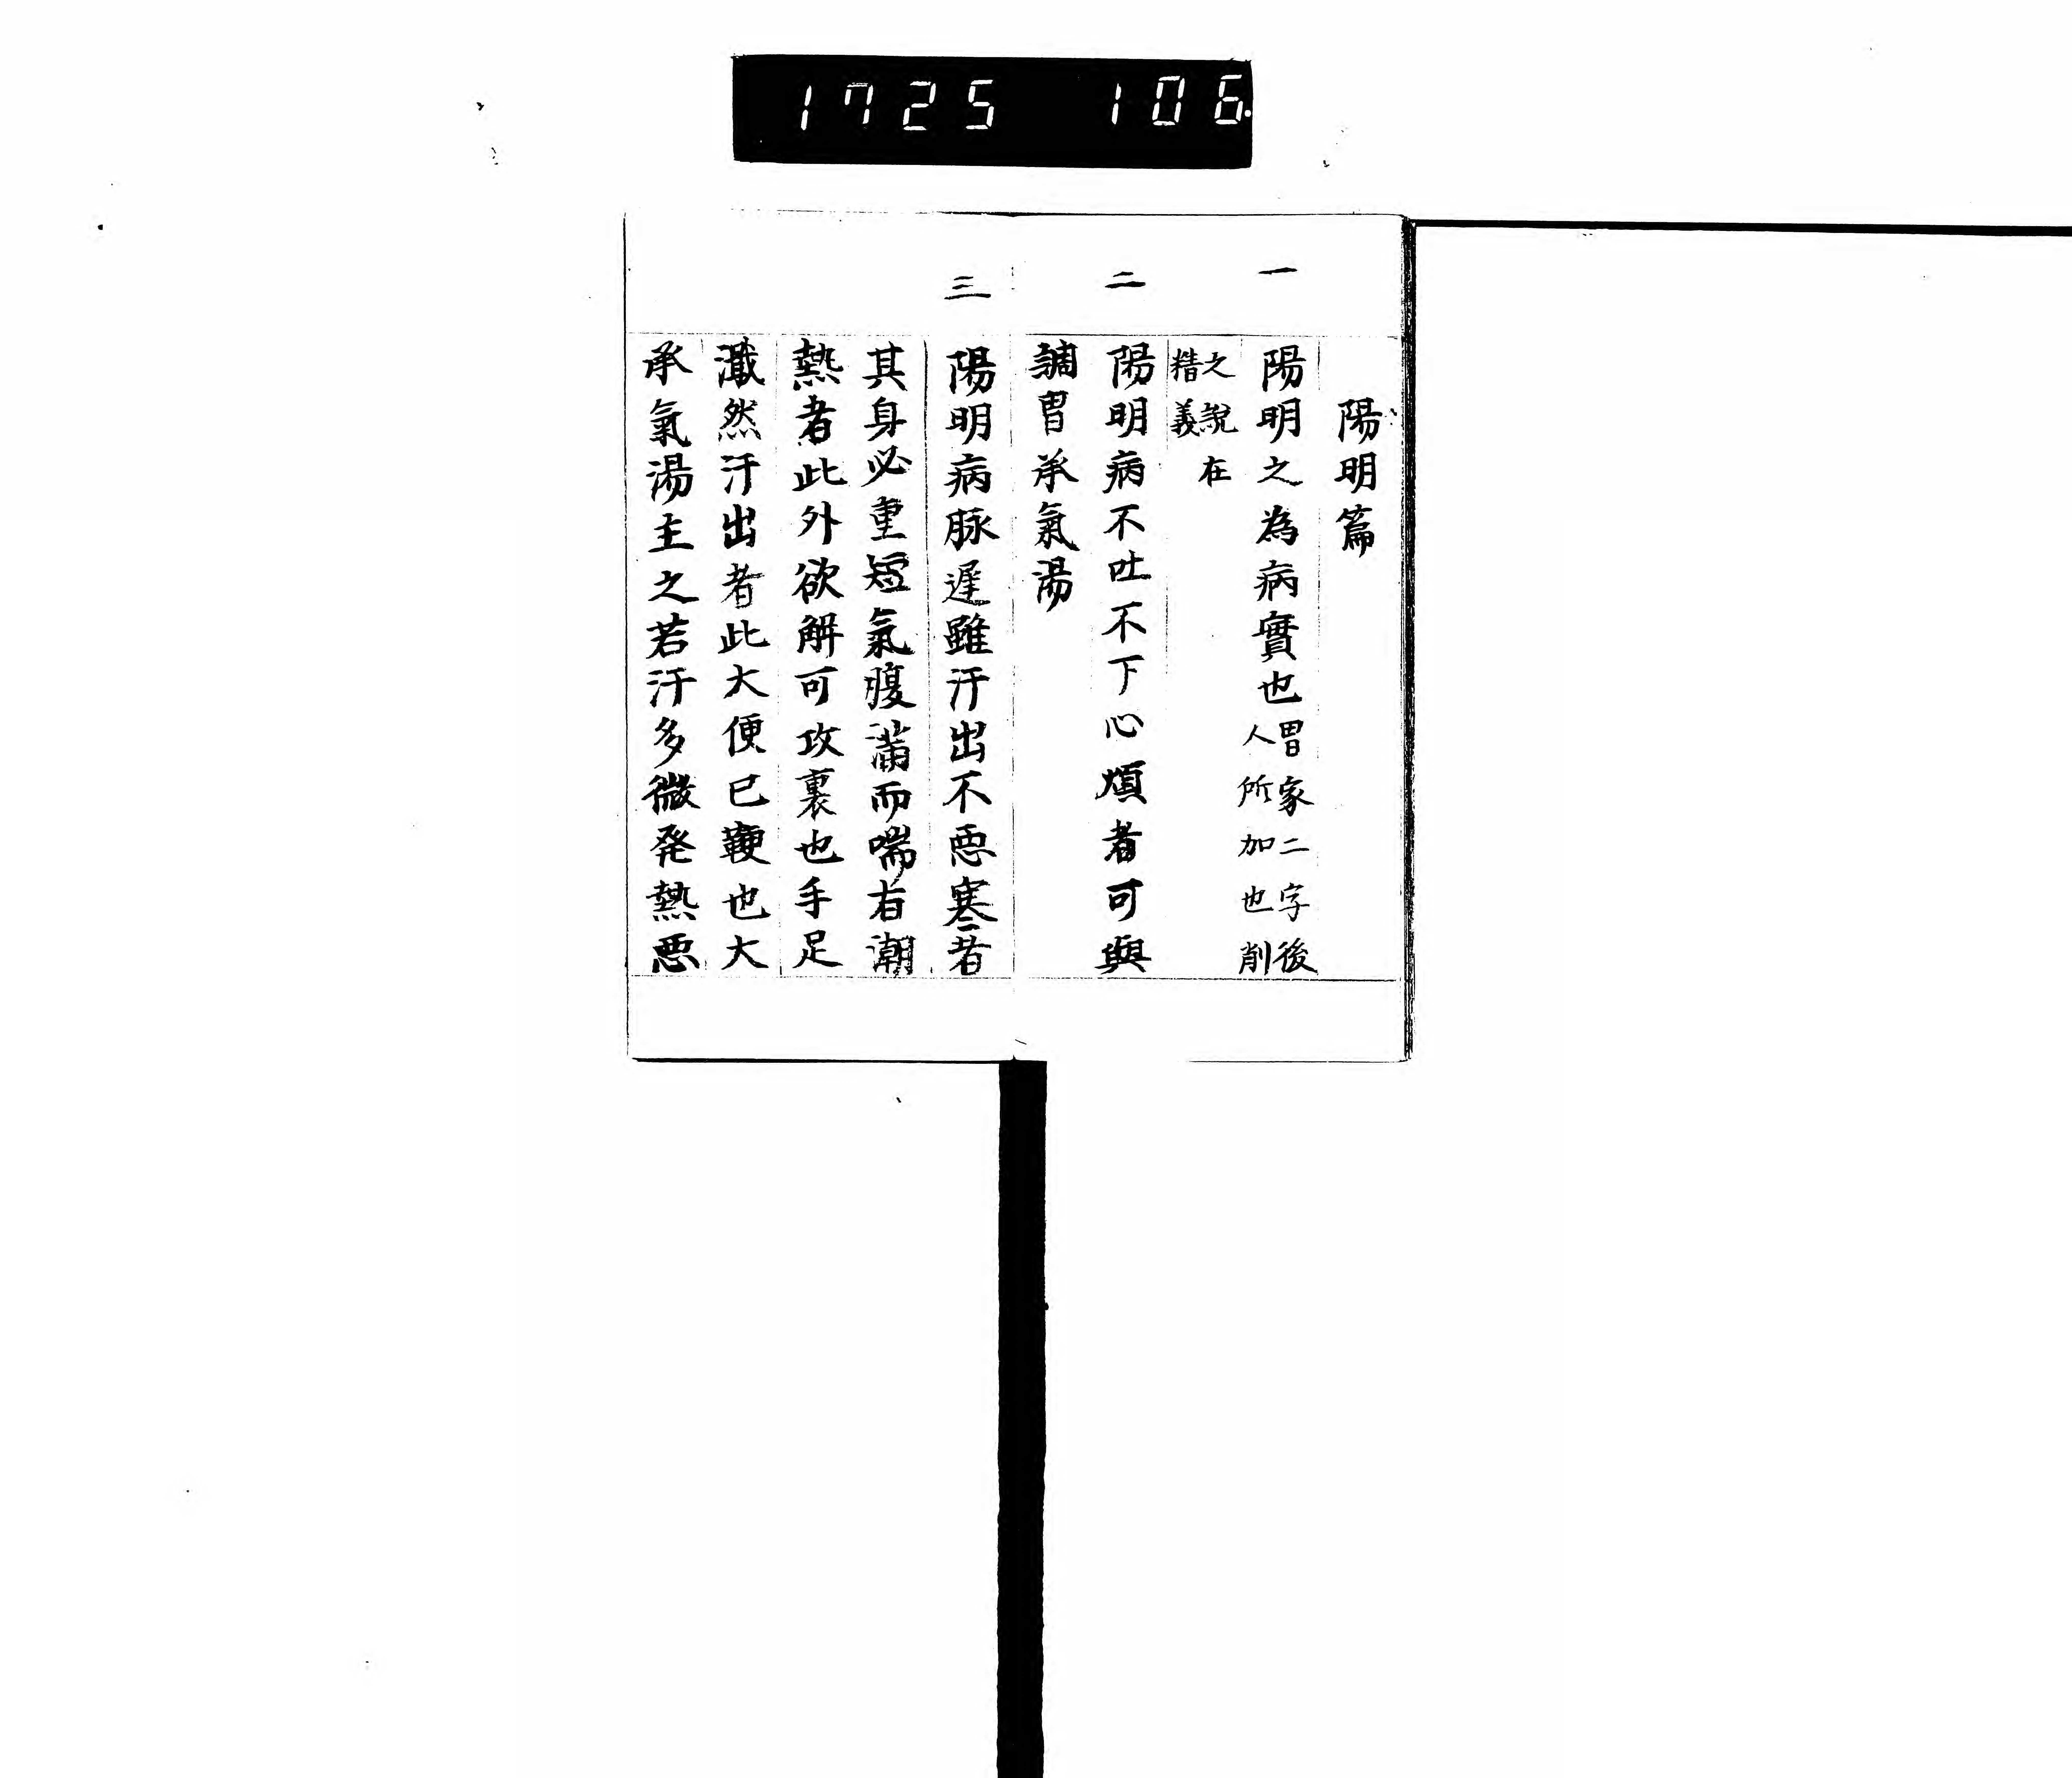 1725 106
一
二
三
陽明篇
陽明之為病實也
胃家二字後
人所加也削
之說在
精義
陽明病不吐不下心煩者可與
調胃承氣湯
陽明病脉遲雖汗出不悪寒者
其身必重短氣腹滿而喘有潮
熱者此外欲解可攻裏也手足
濈然汗出者此大便已鞕也大
承氣湯主之若汗多微発熱悪